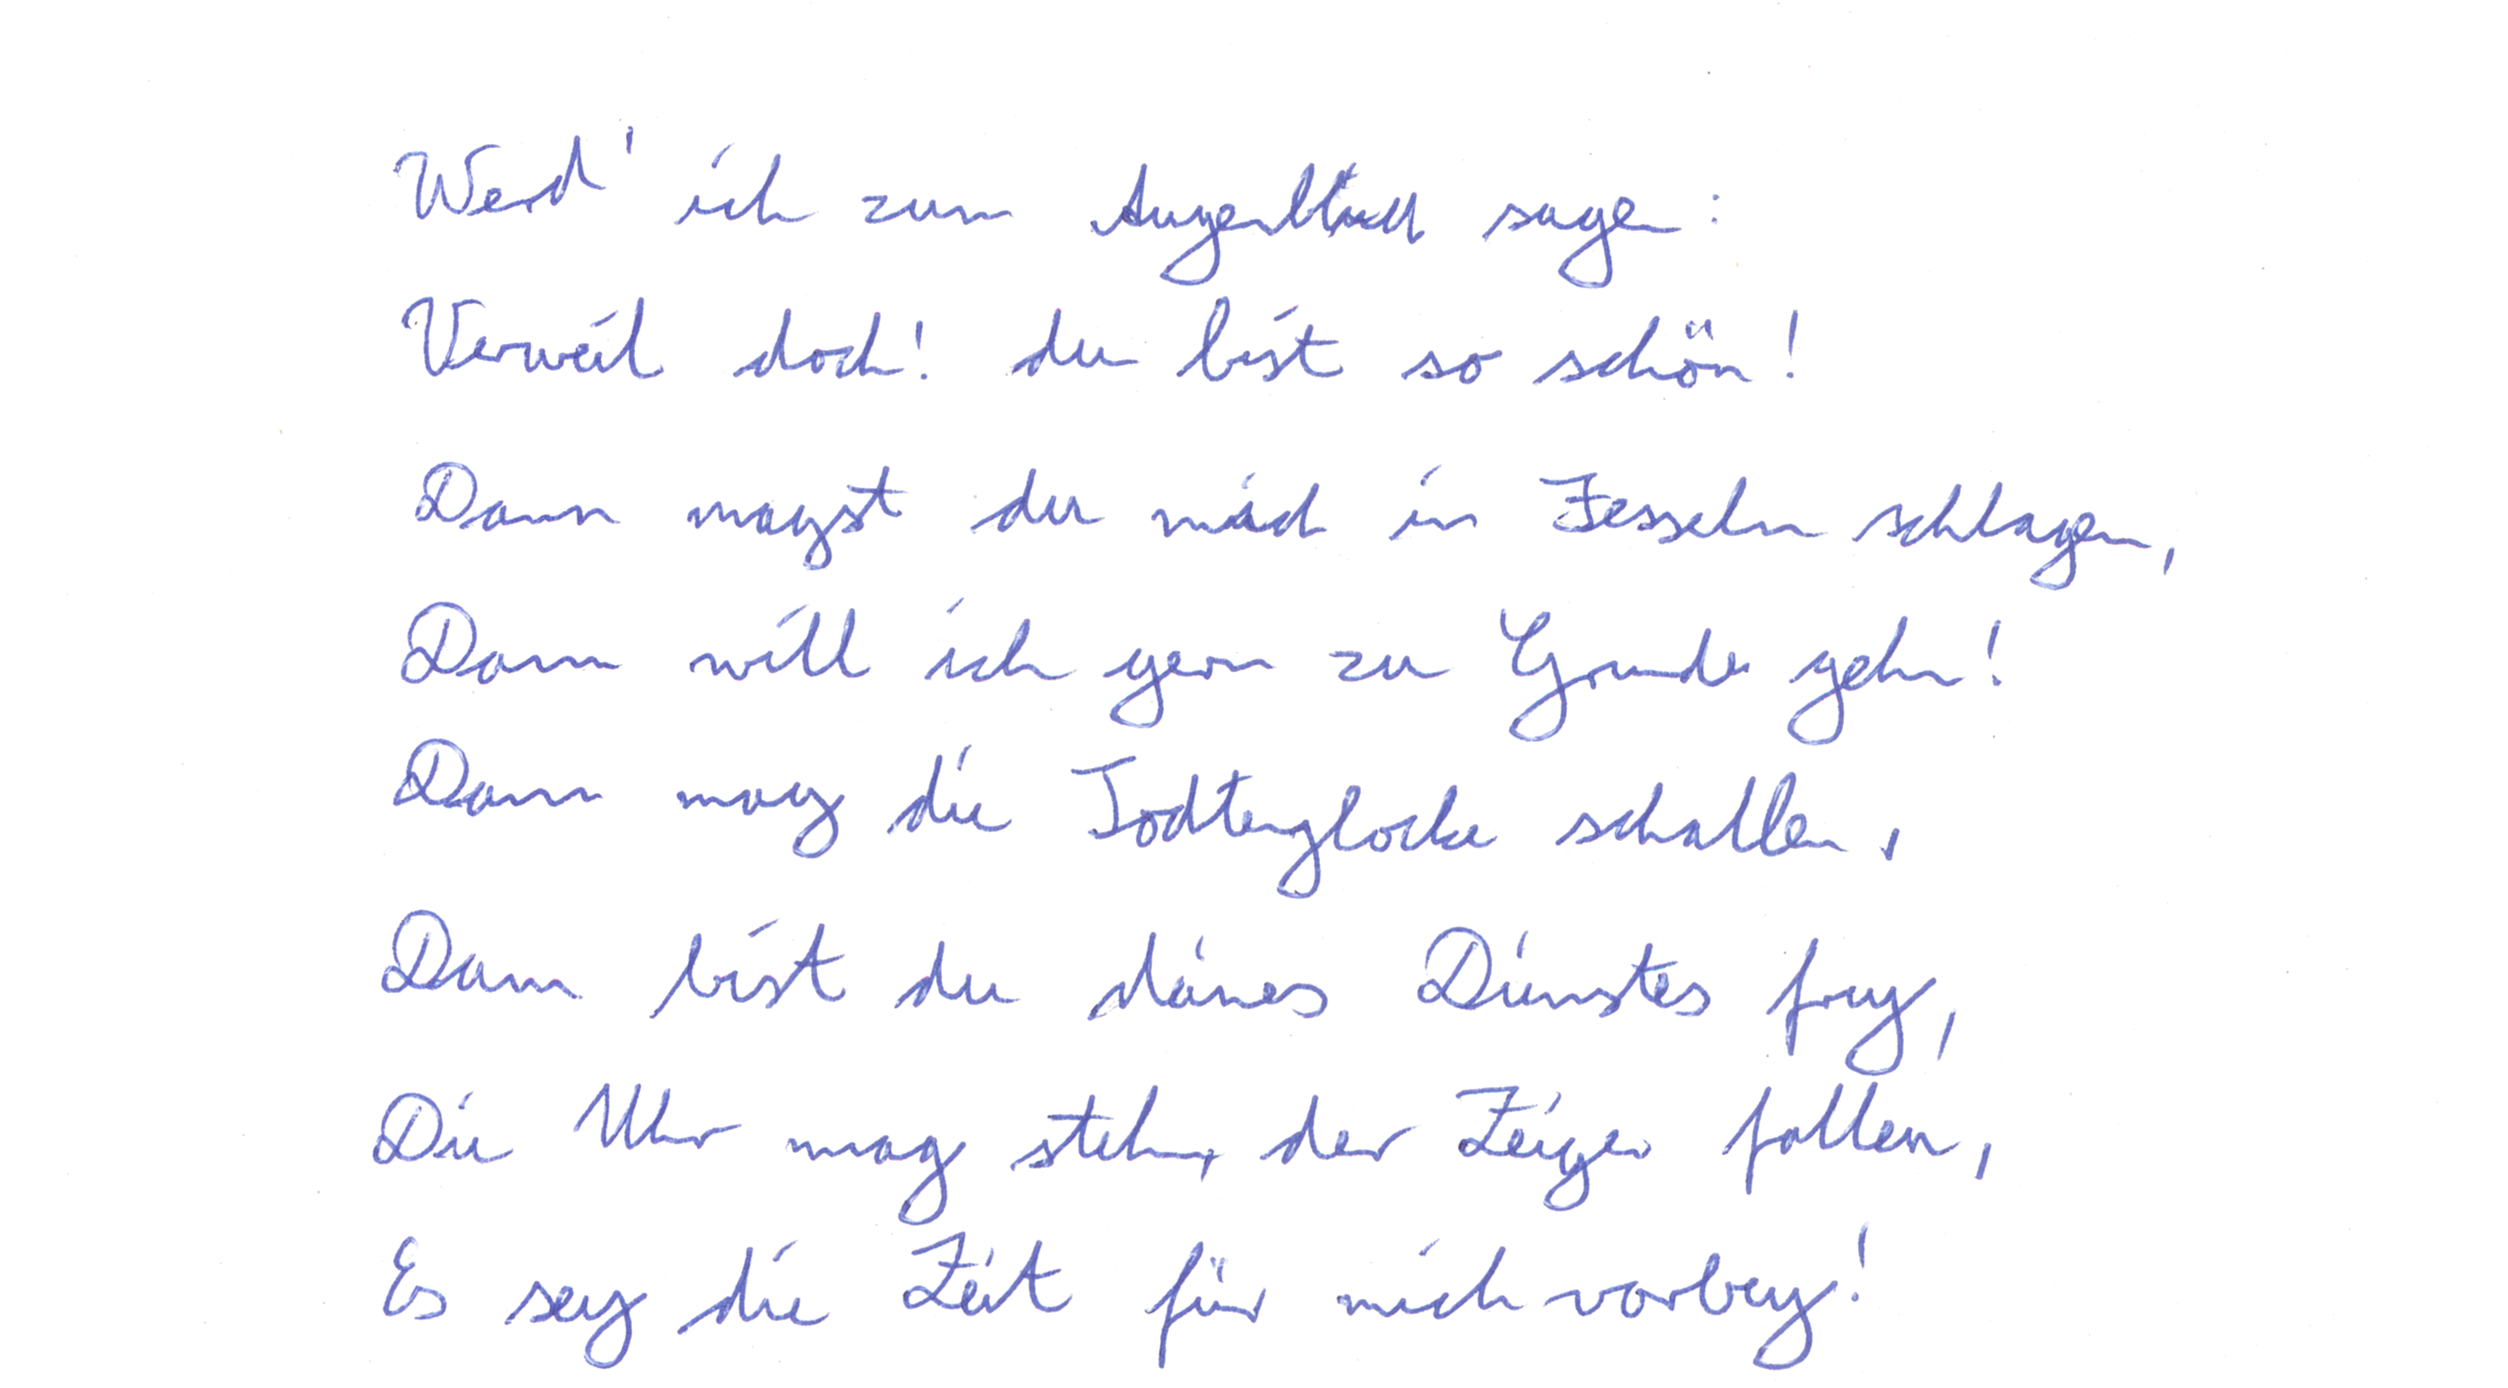 Werd' ich zum Augenblick sagen:
Verweil doch! du bist so schön!
Dann magst du mich in Fesseln schlagen,
Dann will ich gern zu Grunde gehn!
Dann mag die Todtenglocke schallen,
Dann bist du deines Dienstes frey,
Die Uhr mag stehn, der Zeiger fallen,
Es sey die Zeit für mich vorbey!